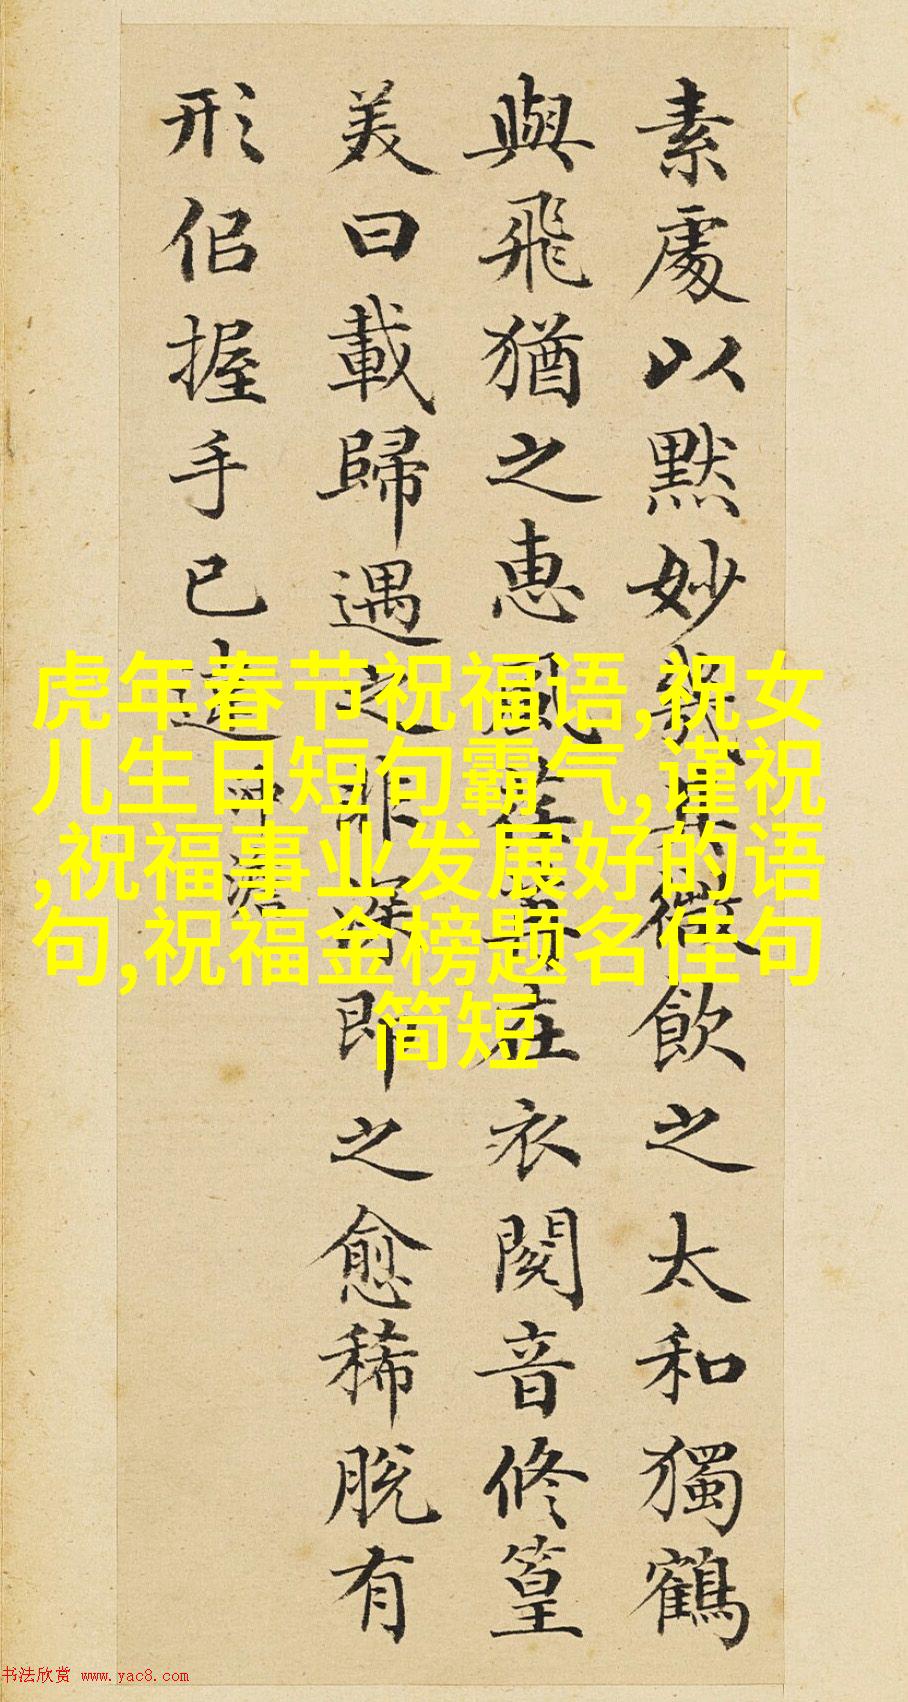 素處以默妙機其微飲之太和獨鶴
與飛猶之惠風荏苒在衣閱音修篁
美曰載歸遇之匪深即之愈稀脫有
形侣握手已違
虎年春节祝福语,祝女
儿生日短句霸气,谨祝
,祝福事业发展好的语
句,祝福金榜题名佳句
简短
书法欣赏 www.yac8.com